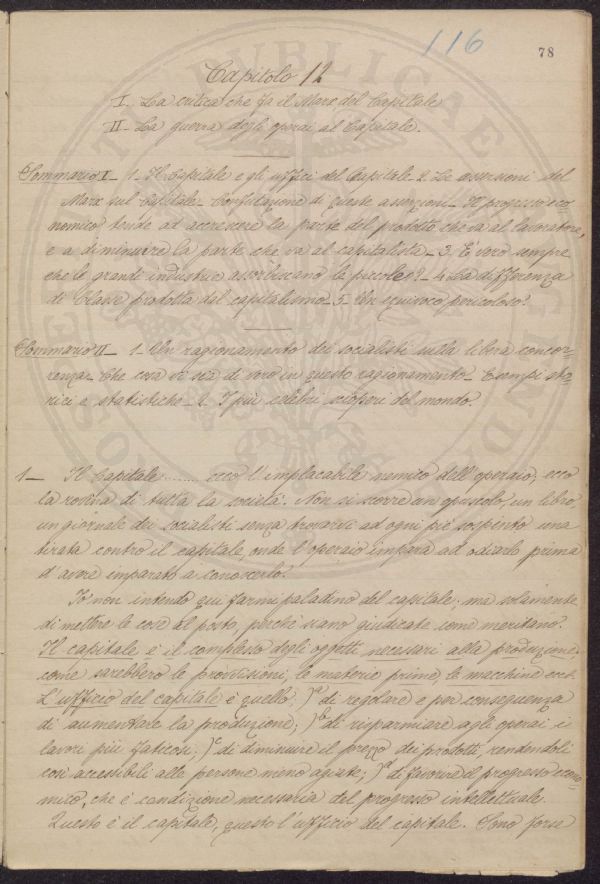 116
78
Capitolo 12
I. La critica che fa il Marx del Capitale
II. La guerra degli operai al Capitale.
Sommario I_ 1. Il Capitale e gli uffici del Capitale_ 2. Le asserzioni del
Marx sul Capitale_ Confutazione di queste asserzioni_ Il progresso eco-
nomico tende ad accrescere la parte del prodotto che va al lavoratore,
e a diminuire la parte che va al capitalista_ 3. È vero sempre
che le grandi industrie assorbiscano le piccole?_ 4. La differenza
di Classe prodotta dal capitalismo_ 5. Un equivoco pericoloso?
Sommario II_ 1. Un ragionamento dei socialisti sulla libera concor-
renza_ Che cosa vi sia di vero in questo ragionamento_ Esempi sto-
rici e statistiche_ 2. I più celebri scioperi del mondo.
1_ Il Capitale ....... ecco l'implacabile nemico dell'operaio, ecco
la rovina di tutta la società. Non si scorre un opuscolo, un libro,
un giornale dei socialisti senza trovarvi ad ogni piè sospinto una
tirata contro il capitale, onde l'operaio impara ad odiarlo prima
d'avere imparato a conoscerlo.
Io non intendo qui farmi paladino del capitale; ma solamente
di mettere le cose al posto, perchè siano giudicate come meritano.
Il capitale è il complesso degli oggetti necessari alla produzione,
come sarebbero le provvisioni, le materie prime, le macchine ecc.
L'ufficio del capitale è quello: )a di regolare e per conseguenza
di aumentare la produzione; )b di risparmiare agli operai i
lavori più faticosi; )c di diminuire il prezzo dei prodotti, rendendoli
così accessibili alle persone meno agiate; )d di favorire il progresso econo-
mico, che è condizione necessaria del progresso intellettuale.
Questo è il capitale, questo l'ufficio del capitale. Sono forse